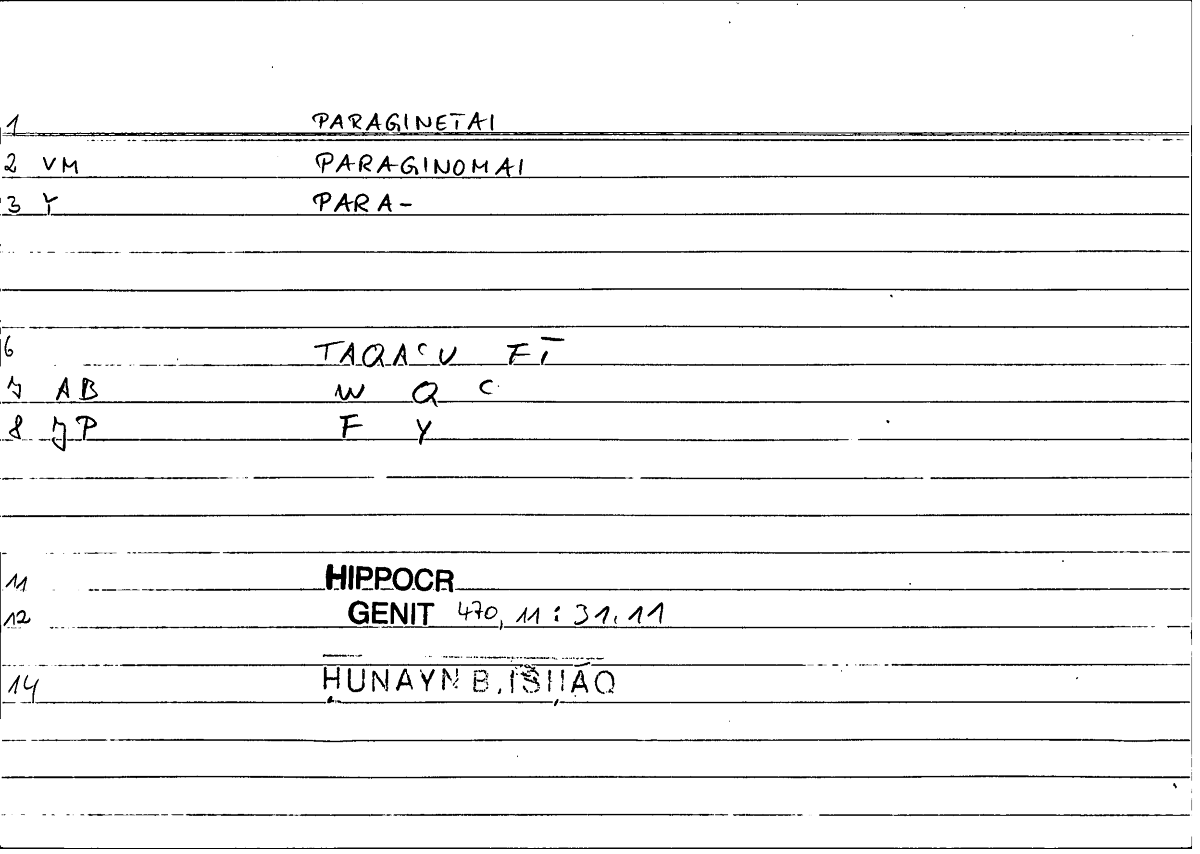 1 PARAGINETAI
2 VM PARAGINOMAI
3 Y PARA-
6 TAQAᶜU FĪ
7 AB W Q C
8 JP F Y
11 HIPPOCR
12 GENIT 470, 11 : 31.11
14 ḤUNAYN B. ISḤĀQ